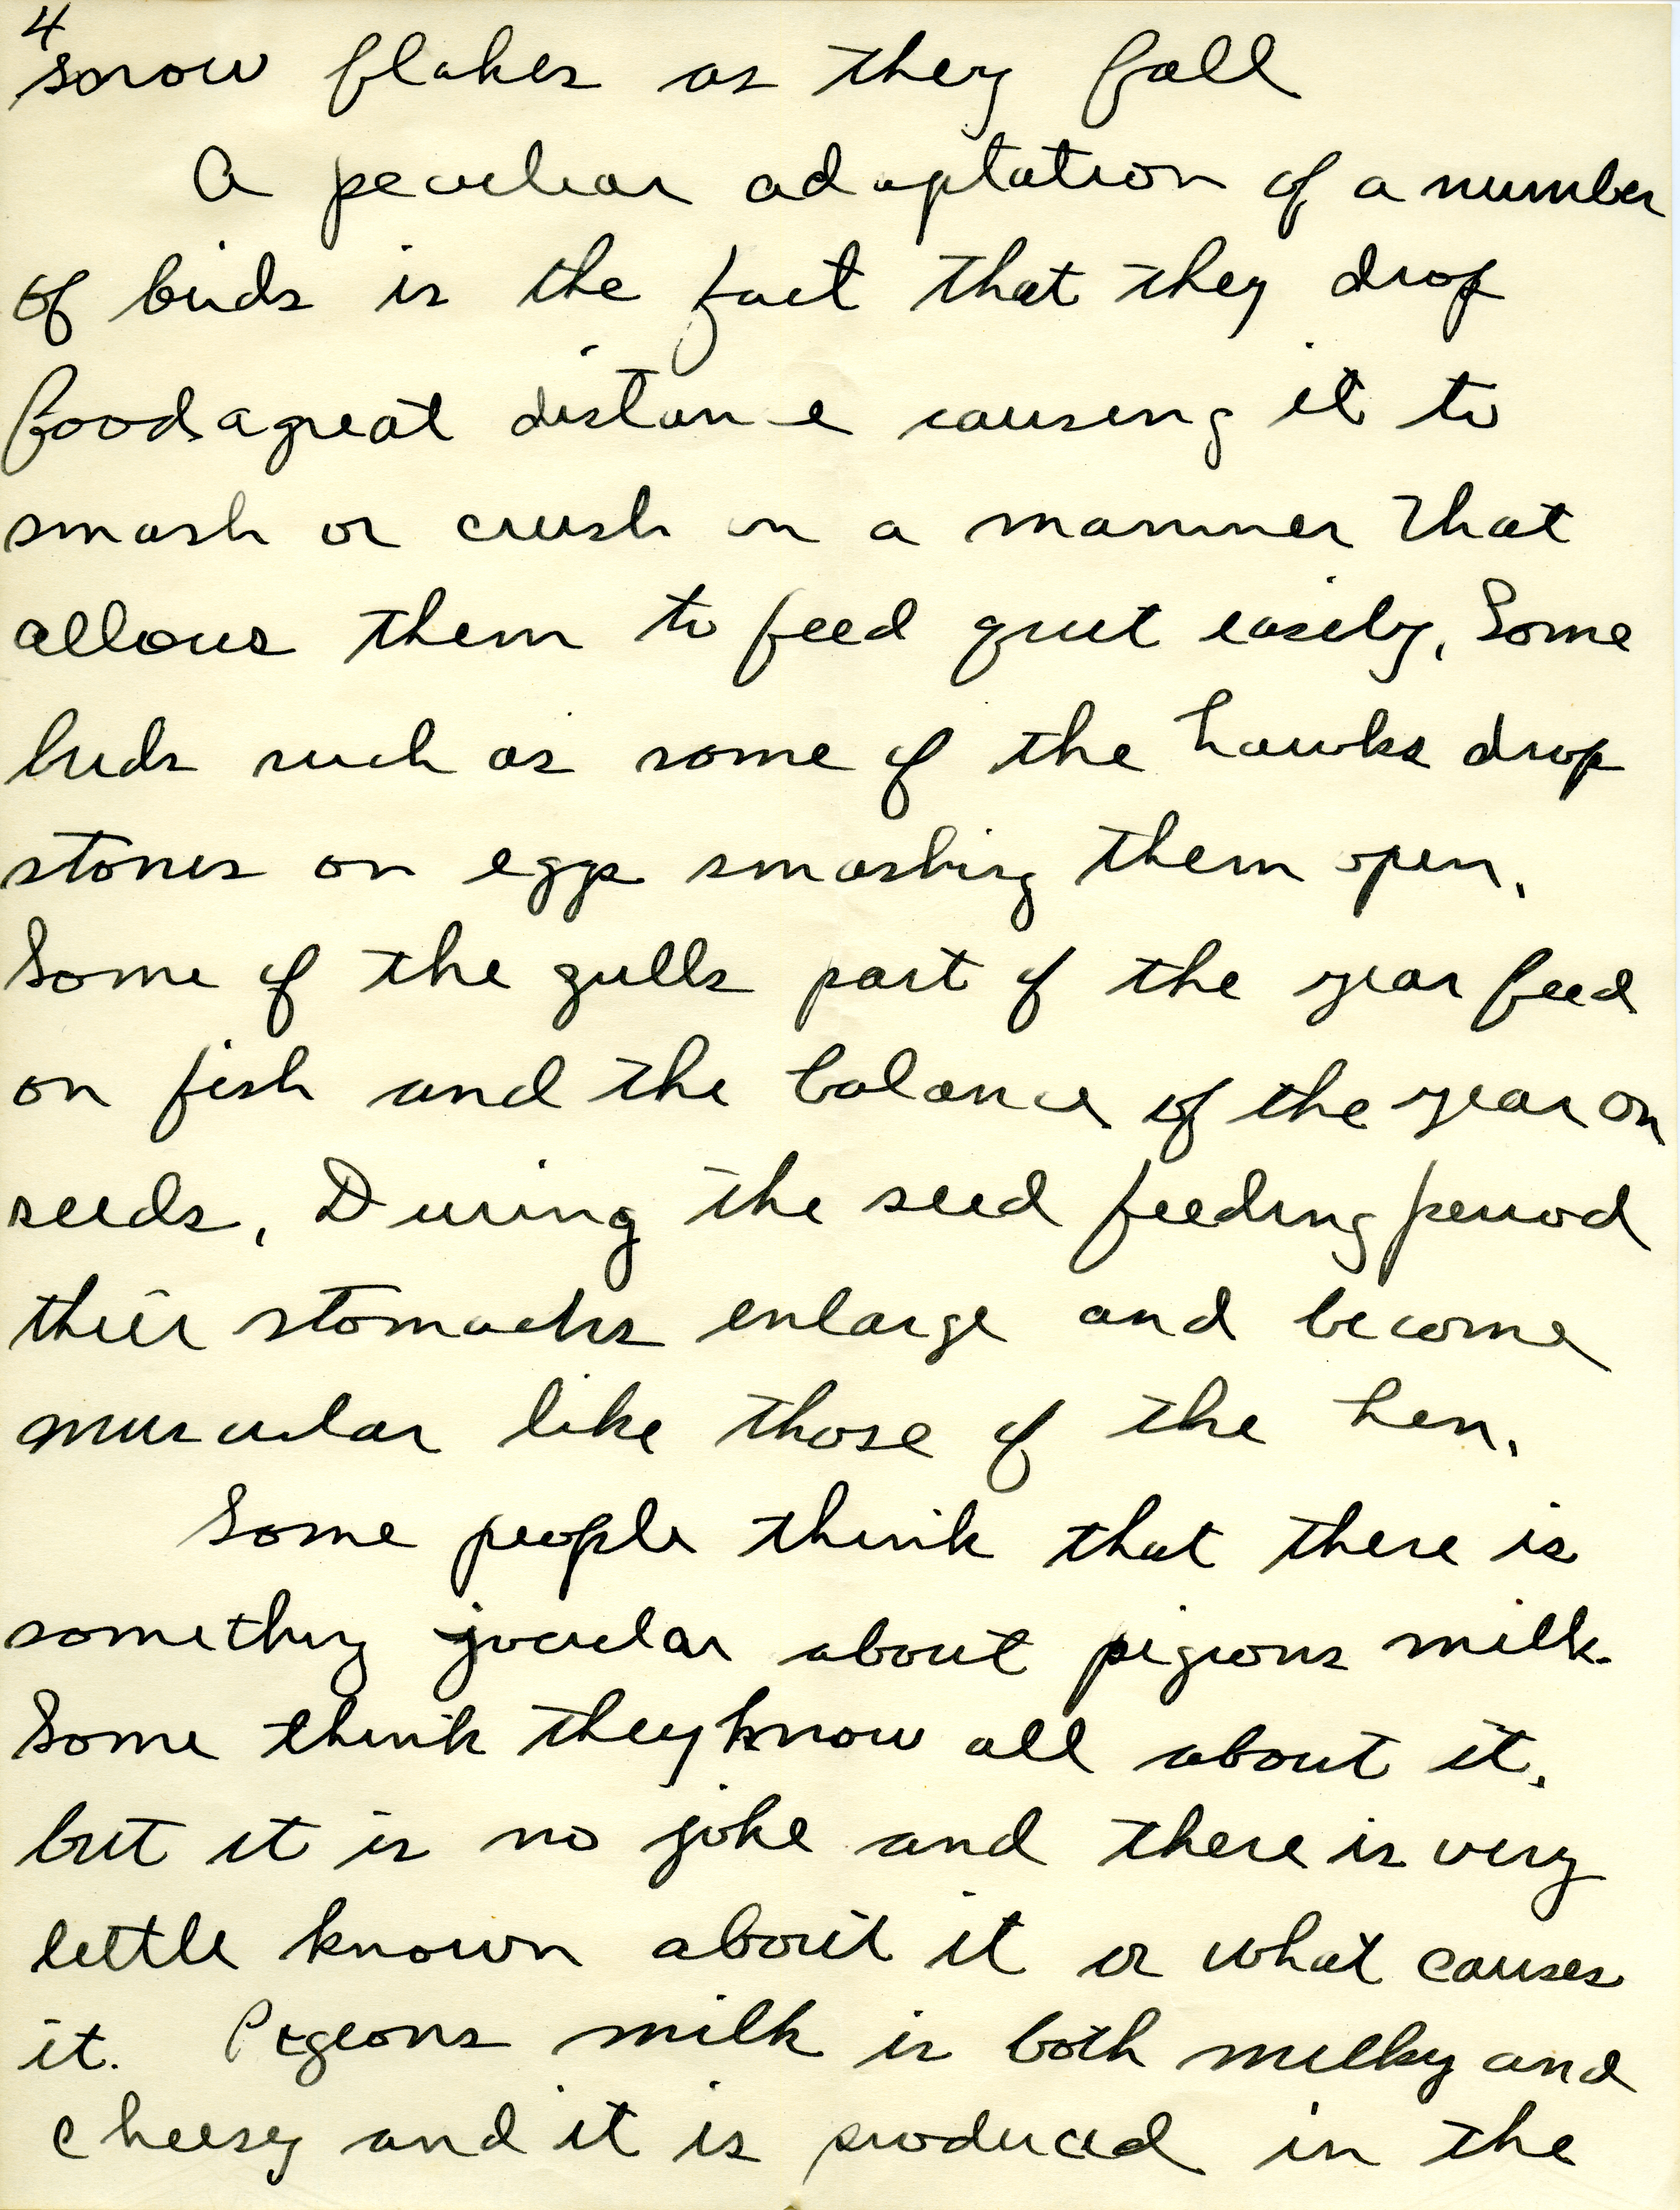 4
snow flakes as they fall
A peculiar adaptation of a number
of birds is the fact that they drop
food a great distance causing it to
smash or crush in a manner that
allows them to feed quit easily. Some
birds such as some of the hawks drop
stones on eggs smashing them open.
Some of the gulls part of the year feed
on fish and the balance of the year on
seeds. During the seed feeding period
their stomachs enlarge and become
muscular like those of the hen.
Some people think that there is
something jocular about pigeons milk.
Some think they know all about it.
but it is no joke and there is very
little known about it or what causes
it. Pigeons milk is both milky and
cheesey and it is produced in the